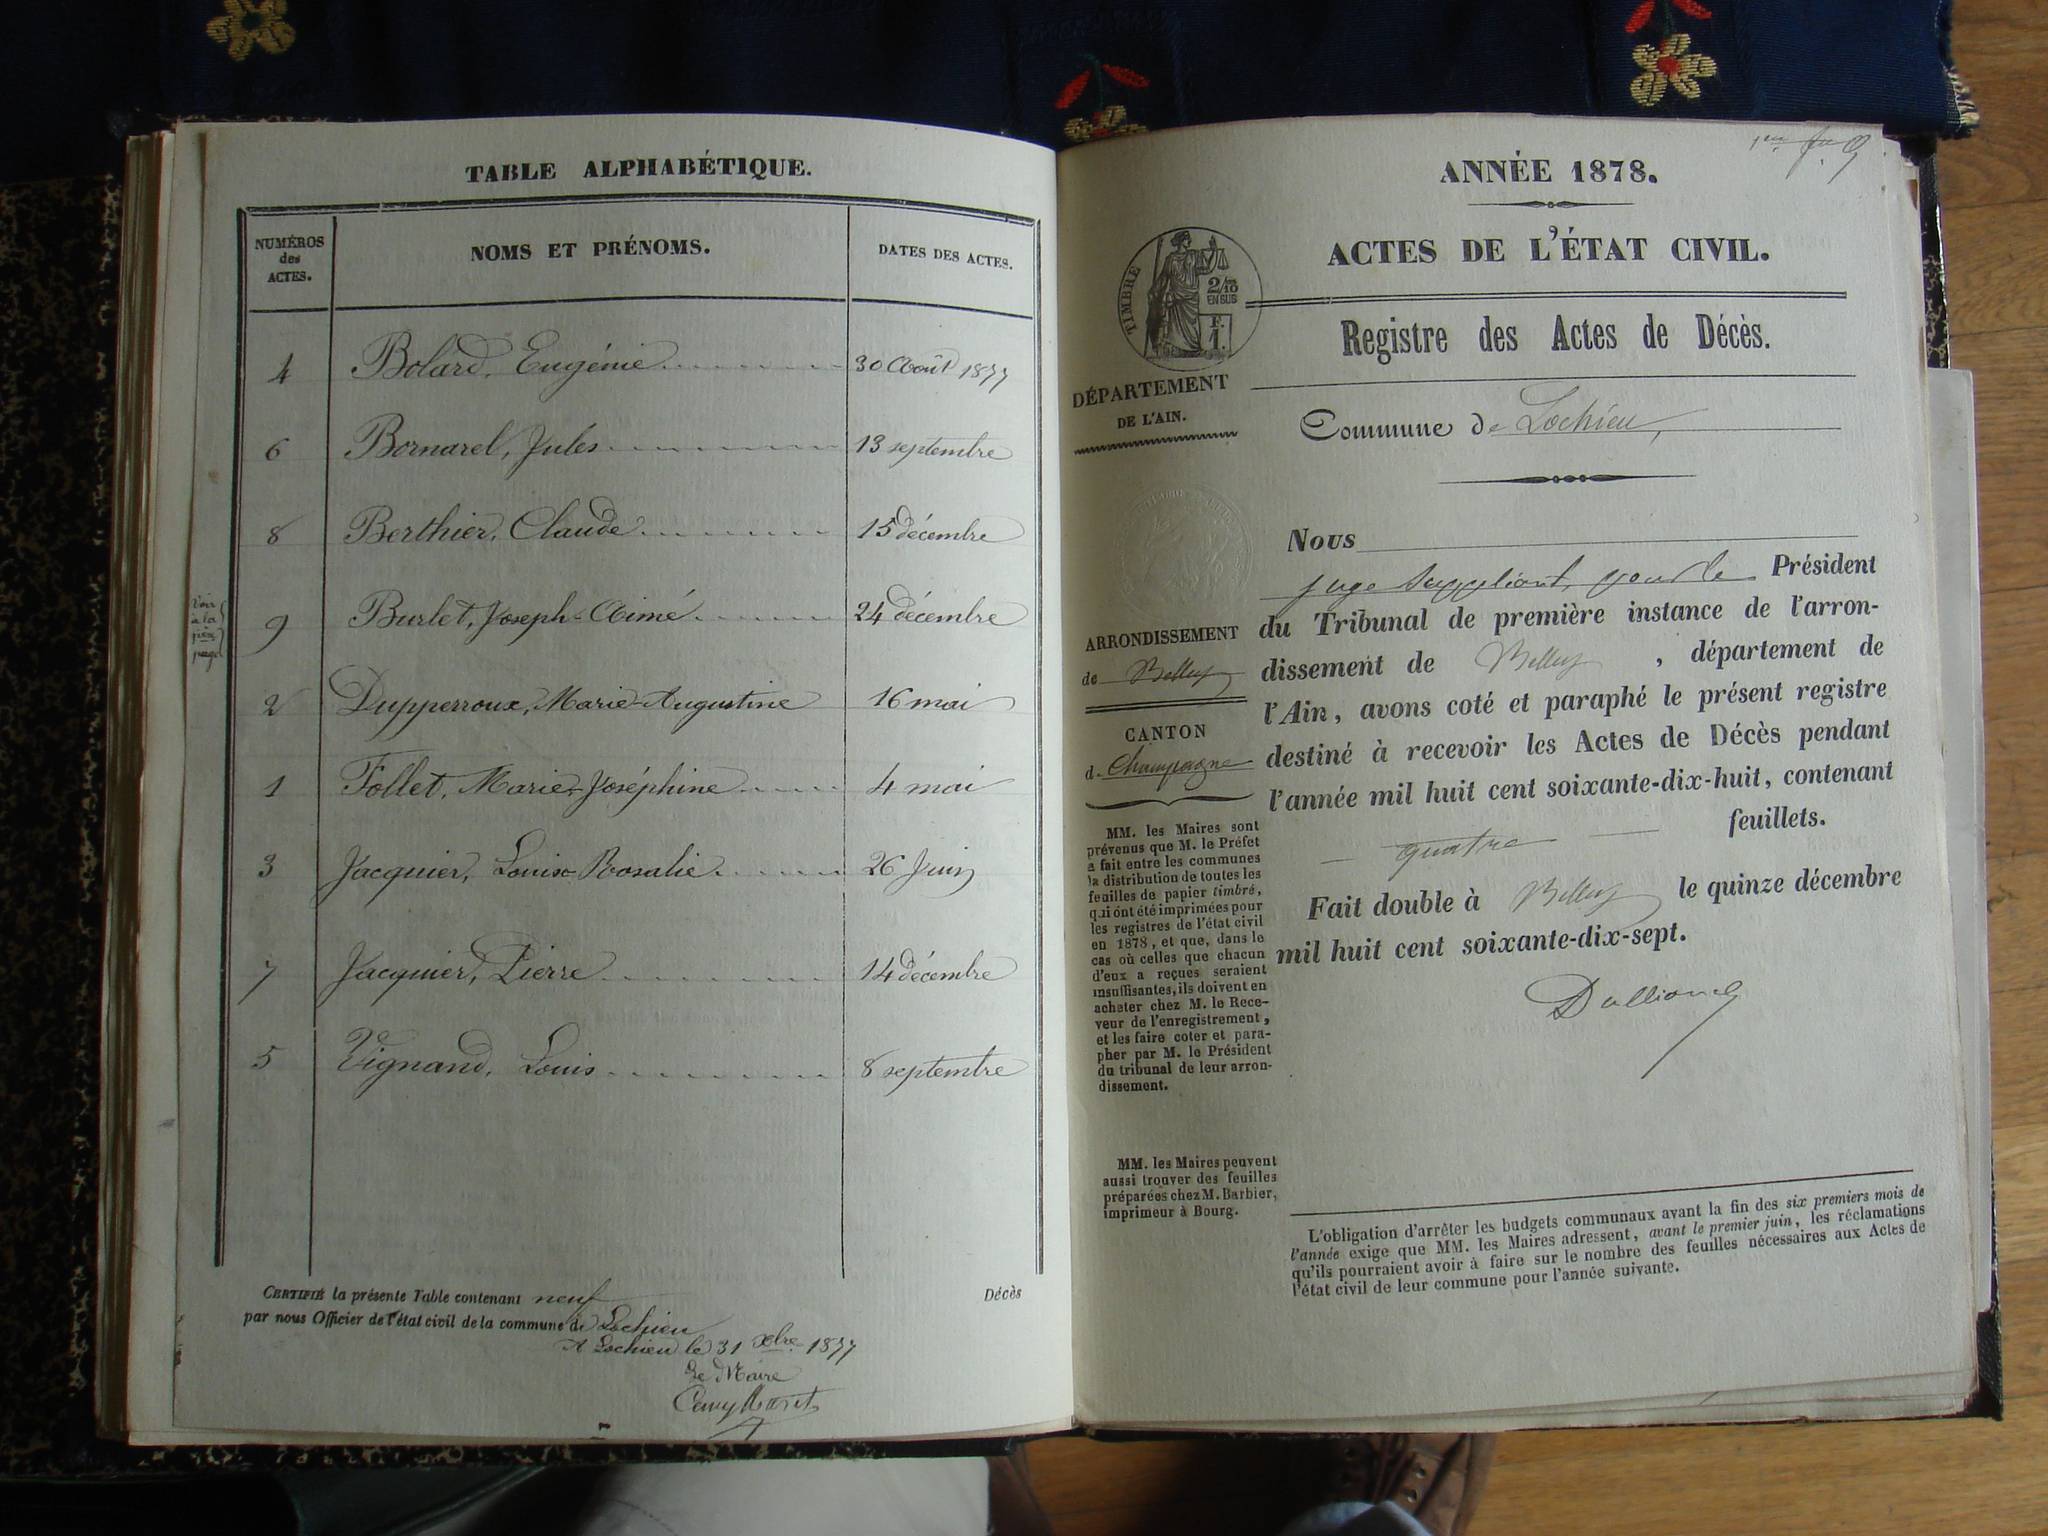 TABLE ALPHABÉTIQUE.
NUMÉROS
des
ACTES.
NOMS ET PRÉNOMS.
DATES DES ACTES.
4 Bolard, Eugénie 30 Août 1877
6 Bornarel, Jules 13 septembre
8 Berthier, Claude 15 décembre
Voir
à la
page
9 Burlet, Joseph-Aimé 24 décembre
2 Dupperroux, Marie-Augustine 16 mai
1 Follet, Marie-Joséphine 4 mai
3 Jacquier, Louise Rosalie 26 Juin
7 Jacquier, Pierre 14 décembre
5 Vignand, Louis 8 septembre
CERTIFIÉ la présente Table contenant neuf
Décès
par nous Officier de l'état civil de la commune de Lochieu
A Lochieu le 31 xbre 1877
Le Maire
ANNÉE 1878.
ACTES DE L'ÉTAT CIVIL.
TIMBRE
2/10
EN SUS
F.
1.
Registre des Actes de Décès.
DÉPARTEMENT
DE L'AIN.
Commune de Lochieu,
Nous
juge suppléant, pour le Président
du Tribunal de première instance de l'arron-
dissement de Belley, département de
l'Ain, avons coté et paraphé le présent registre
destiné à recevoir les Actes de Décès pendant
l'année mil huit cent soixante-dix-huit, contenant
quatre feuillets.
Fait double à Belley le quinze décembre
mil huit cent soixante-dix-sept.
ARRONDISSEMENT
de Belley
CANTON
d. Champagne
MM. les Maires sont
prévenus que M. le Préfet
a fait entre les communes
la distribution de toutes les
feuilles de papier timbré,
qui ont été imprimées pour
les registres de l'état civil
en 1878, et que, dans le
cas où celles que chacun
d'eux a reçues seraient
insuffisantes, ils doivent en
acheter chez M. le Rece-
veur de l'enregistrement,
et les faire coter et para-
pher par M. le Président
du tribunal de leur arron-
dissement.
MM. les Maires peuvent
aussi trouver des feuilles
préparées chez M. Barbier,
imprimeur à Bourg.
L'obligation d'arrêter les budgets communaux avant la fin des six premiers mois de
l'année exige que MM. les Maires adressent, avant le premier juin, les réclamations
qu'ils pourraient avoir à faire sur le nombre des feuilles nécessaires aux Actes de
l'état civil de leur commune pour l'année suivante.